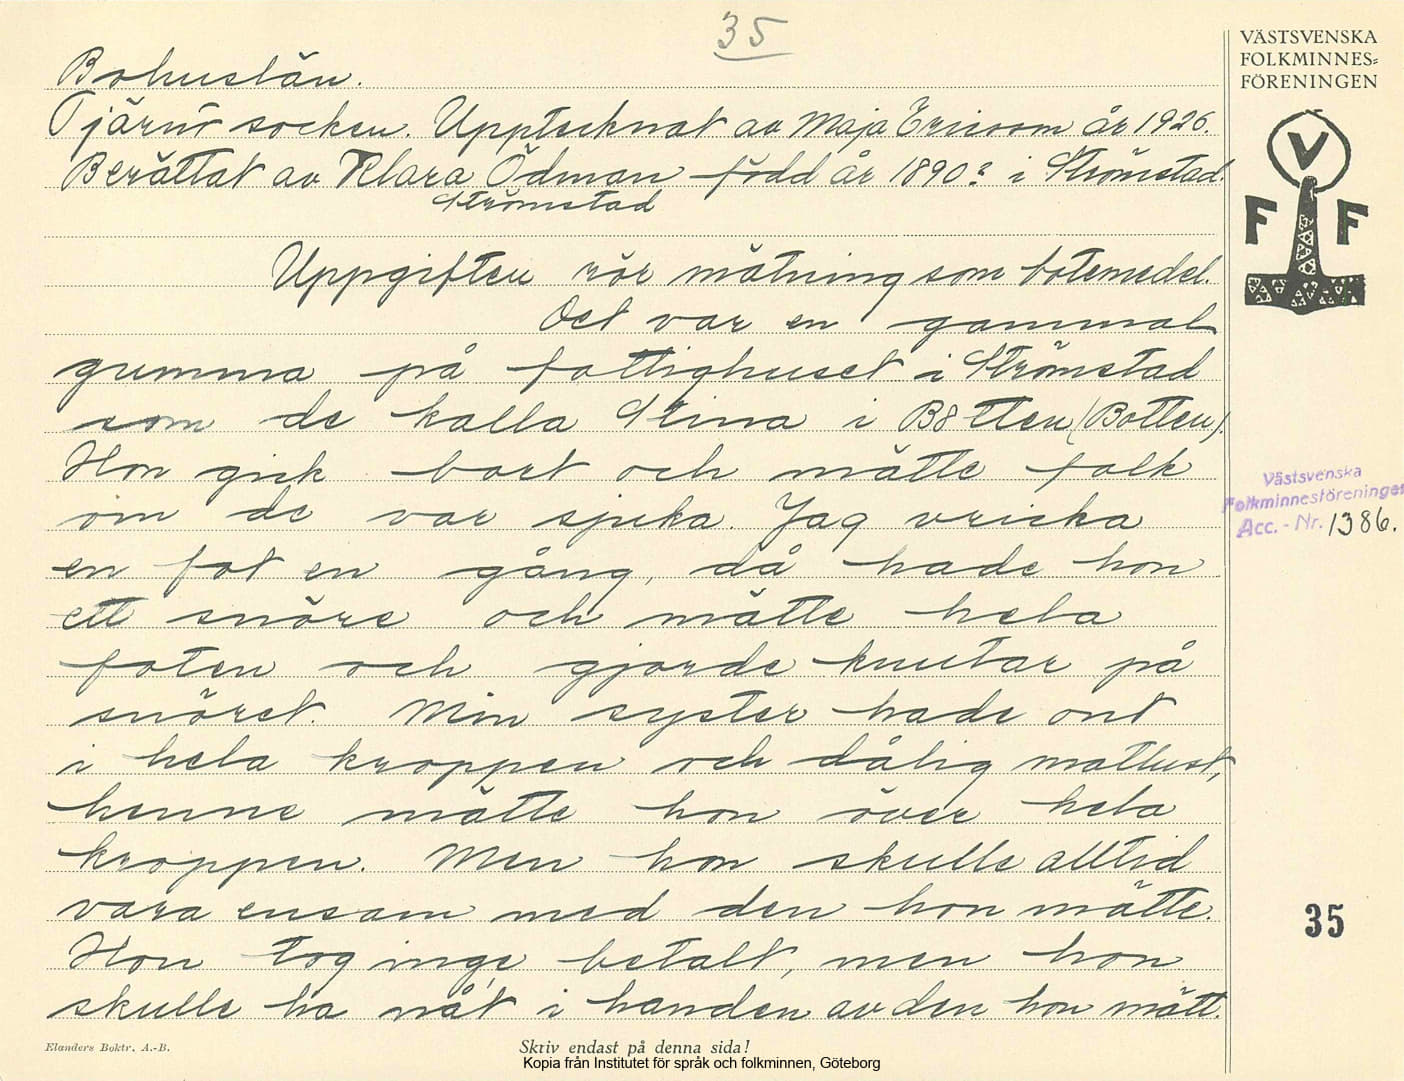 35
VÄSTSVENSKA
FOLKMINNES=
FÖRENINGEN
Bohuslän.
Tjärnö socken. Upptecknat av Maja Ericson år 1926.
Berättat av Klara Ödman född år 1890? i Strömstad.
Strömstad
V
F F
Uppgiften rör mätning som botemedel.
Det var en gammal
gumma på fattighuset i Strömstad
som de kalla Stina i Bötten (Botten).
Hon gick bort och mätte folk
om de var sjuka. Jag vricka
en fot en gång, då hade hon
ett snöre och mätte hela
foten och gjorde knutar på
snöret. Min syster hade ont
i hela kroppen och dålig matlust,
henne mätte hon över hela
kroppen. Men hon skulle alltid
vara ensam med den hon mätte.
Hon tog inge betalt, men hon
skulle ha nåt i handen av den hon mätt.
Västsvenska
Folkminnesföreningen
Acc. - Nr. 1386.
35
Elanders Boktr. A.-B.
Skriv endast på denna sida!
Kopia från Institutet för språk och folkminnen, Göteborg